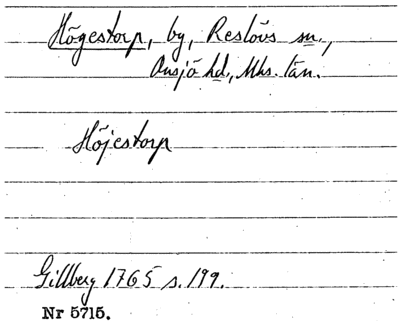 Högestorp, by, Reslövs sn,
Onsjö hd., Mhs. län.
Höjestorp
Gillberg 1765 s. 199.
Nr 5715.